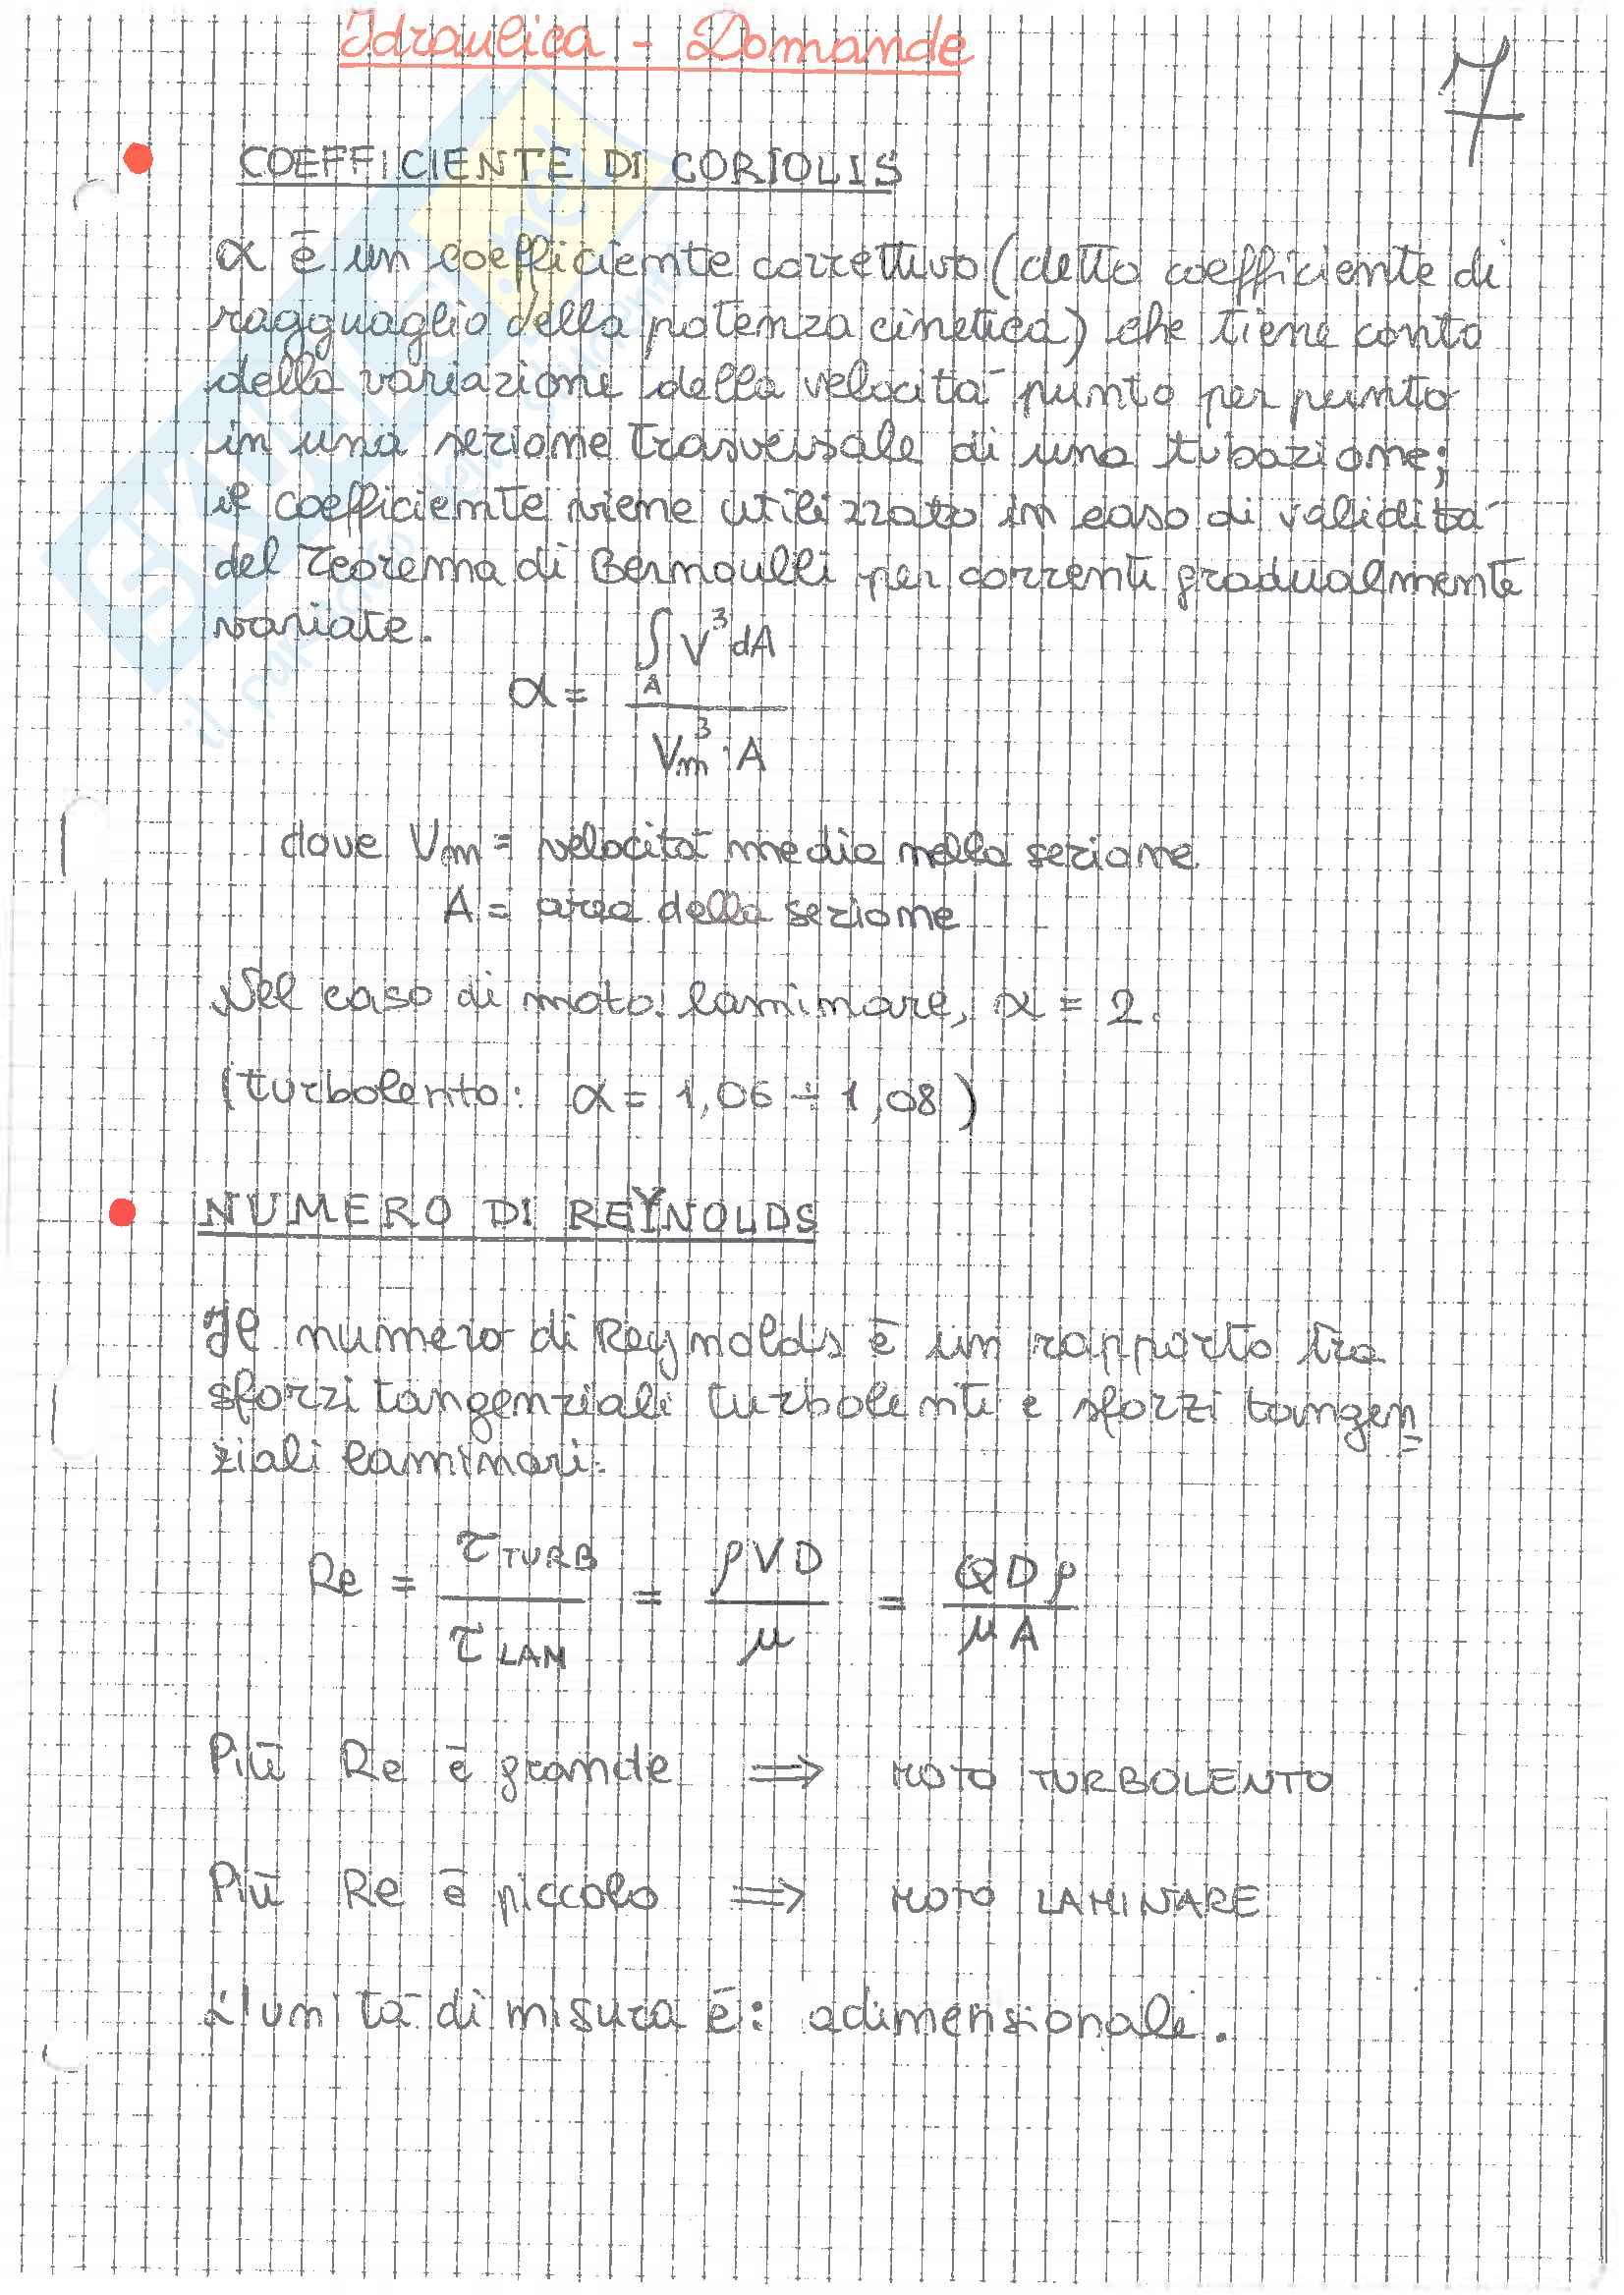 Idraulica - Domande
7
COEFFICIENTE DI CORIOLIS
α è un coefficiente correttivo (detto coefficiente di
ragguaglio della potenza cinetica) che tiene conto
della variazione della velocità punto per punto
in una sezione trasversale di una tubazione;
il coefficiente viene utilizzato in caso di validità
del Teorema di Bernoulli per correnti gradualmente
variate.
α = ∫_A V³ dA / Vm³ · A
dove Vm = velocità media nella sezione
A = area della sezione
Nel caso di moto laminare, α = 2.
(turbolento: α = 1,06 ÷ 1,08)
NUMERO DI REYNOLDS
Il numero di Reynolds è un rapporto tra
sforzi tangenziali turbolenti e sforzi tangen
ziali laminari:
Re = τ TURB / τ LAM = ρVD / μ = QDρ / μA
Più Re è grande ⇒ MOTO TURBOLENTO
Più Re è piccolo ⇒ MOTO LAMINARE
L'unità di misura è: adimensionale.